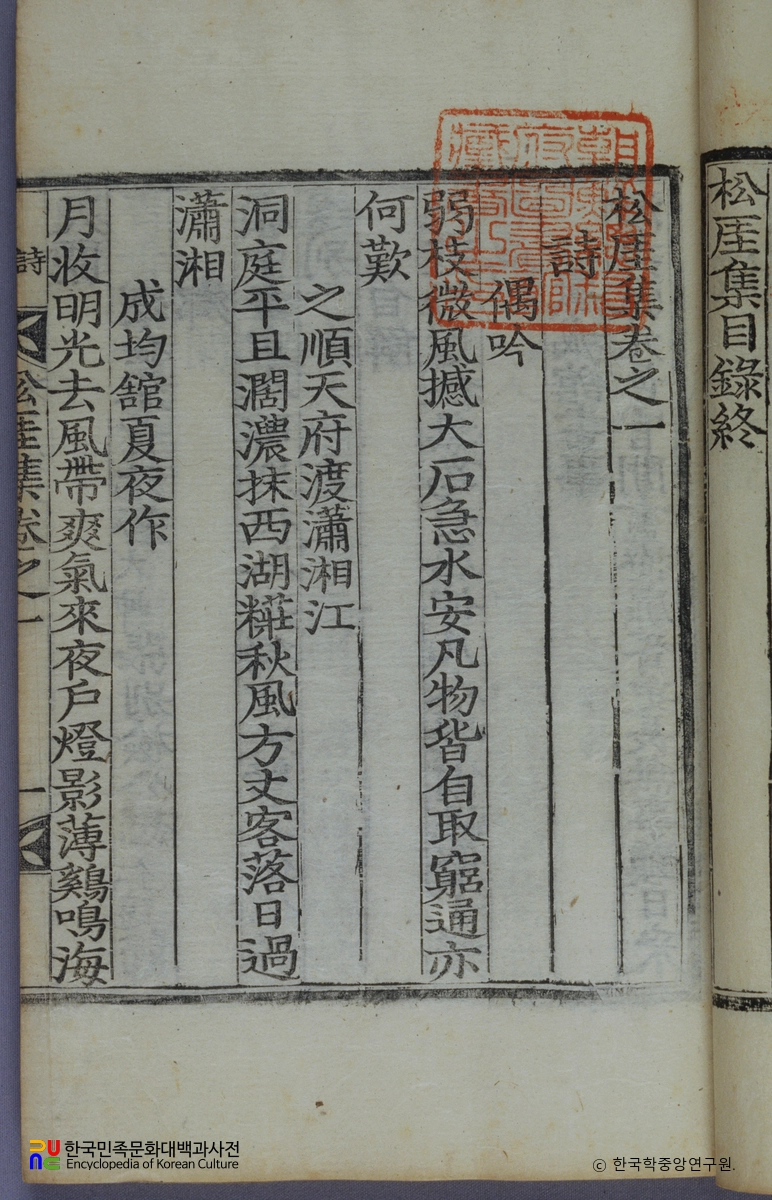 松厓集目錄終
松厓集卷之一
詩
偶吟
弱枝微風撼大石急水安凡物皆自取窮通亦
何歎
之順天府渡瀟湘江
洞庭平且濶濃抹西湖糚秋風方丈客落日過
瀟湘
成均舘夏夜作
月收明光去風帶爽氣來夜戶燈影薄鷄鳴海
詩
松厓集卷之一
一
한국민족문화대백과사전
Encyclopedia of Korean Culture
© 한국학중앙연구원.